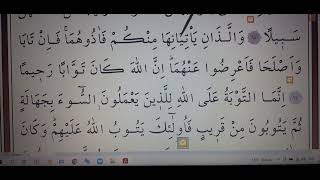 سَبٖيلًا ﴿١٥﴾ وَالَّذَانِ يَأْتِيَانِهَا مِنْكُمْ فَاٰذُوهُمَاۚ فَاِنْ تَابَا
وَاَصْلَحَا فَاَعْرِضُوا عَنْهُمَاۜ اِنَّ اللّٰهَ كَانَ تَوَّابًا رَحٖيمًا
﴿١٦﴾ اِنَّمَا التَّوْبَةُ عَلَى اللّٰهِ لِلَّذٖينَ يَعْمَلُونَ السُّٓوءَ بِجَهَالَةٍ
ثُمَّ يَتُوبُونَ مِنْ قَرٖيبٍ فَاُو۬لٰٓئِكَ يَتُوبُ اللّٰهُ عَلَيْهِمْۜ وَكَانَ